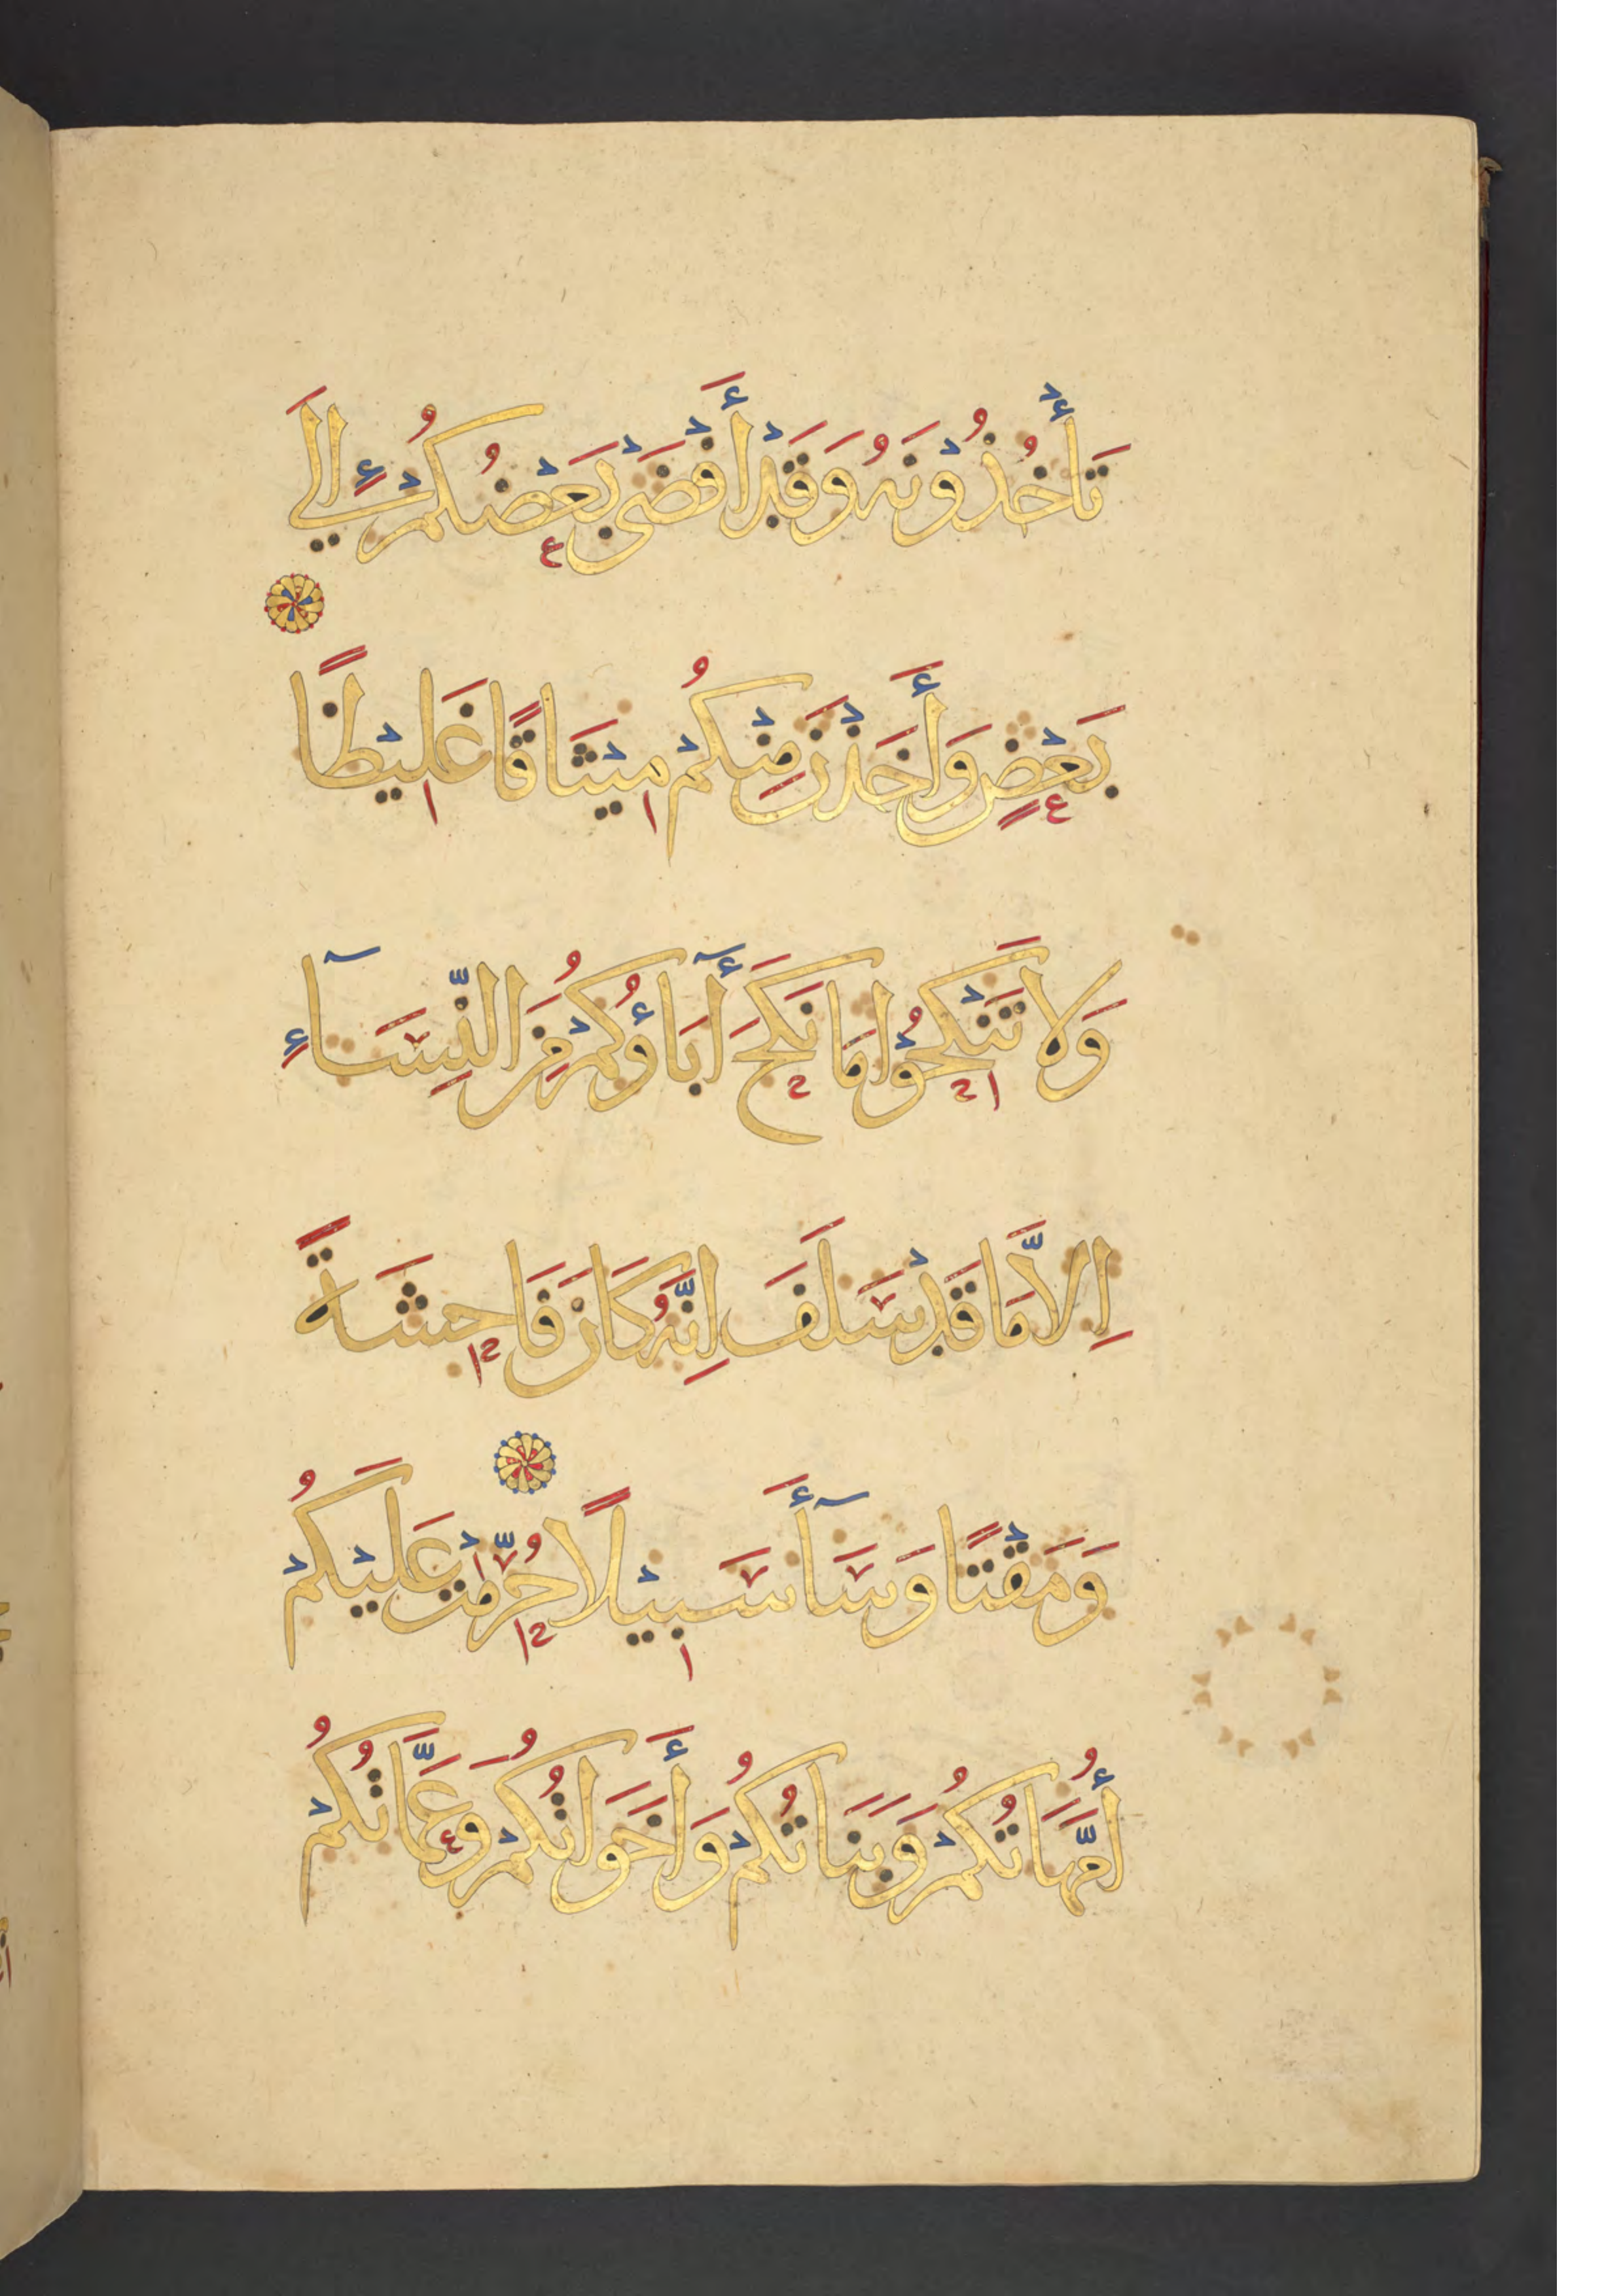 تَأْخُذُوْنَهُ وَقَدْ أَفْضَى بَعْضُكُمْ إِلَي
بَعْضٍ وَأَخَذْنَ مِنْكُمْ مِيْثَاقًا غَلِيْظًا
وَلَا تَنْكِحُوْا مَا نَكَحَ أَبَاؤُكُمْ مِنَ النِّسَآءِ
اِلَّا مَا قَدْ سَلَفَ اِنَّهُ كَانَ فَاحِشَةً
وَمَقْتًا وَسَآأَ سَبِيْلًا حُرِّمَتْ عَلَيْكُمْ
أُمَّهَاتُكُمْ وَبَنَاتُكُمْ وَأَخَوَاتُكُمْ وَعَمَّاتُكُمْ